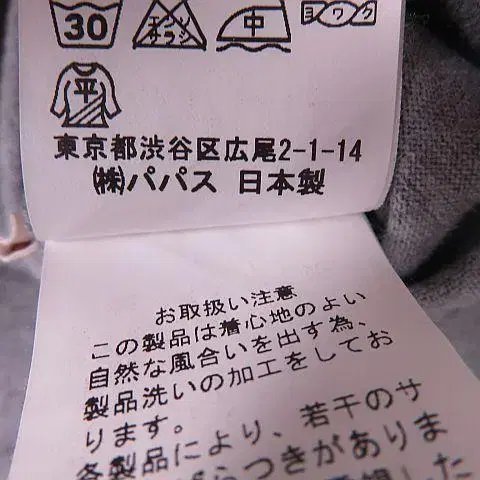 30 エンソ サラシ 中 ヨワク
平
東京都渋谷区広尾2-1-14
㈱パパス 日本製
お取扱い注意
この製品は着心地のよい
自然な風合いを出す為、
製品洗いの加工をしてお
ります。
各製品により、若干のサ
らつきがありま